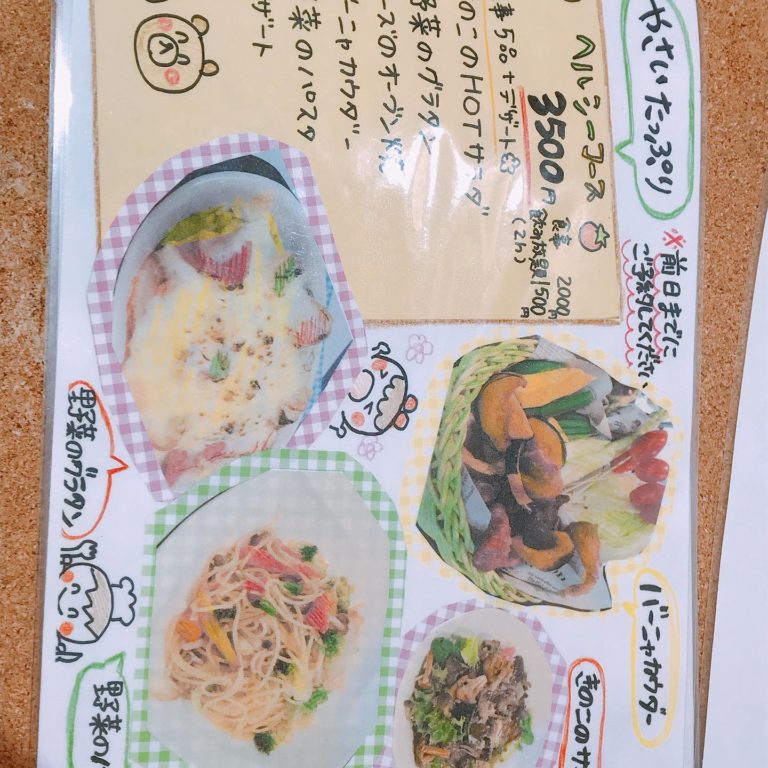 やさいたっぷり
※前日までに
ご予約してください
ヘルシーコース
3500円
食事 2000円
飲み放題 1500円
(2h)
事500+デザート
のこのHOTサラダ
野菜のグラタン
ーズのオーブン
ーニャカウダー
菜のパスタ
ザート
野菜のグラタン
バーニャカウダー
きのこのサ
野菜のパ